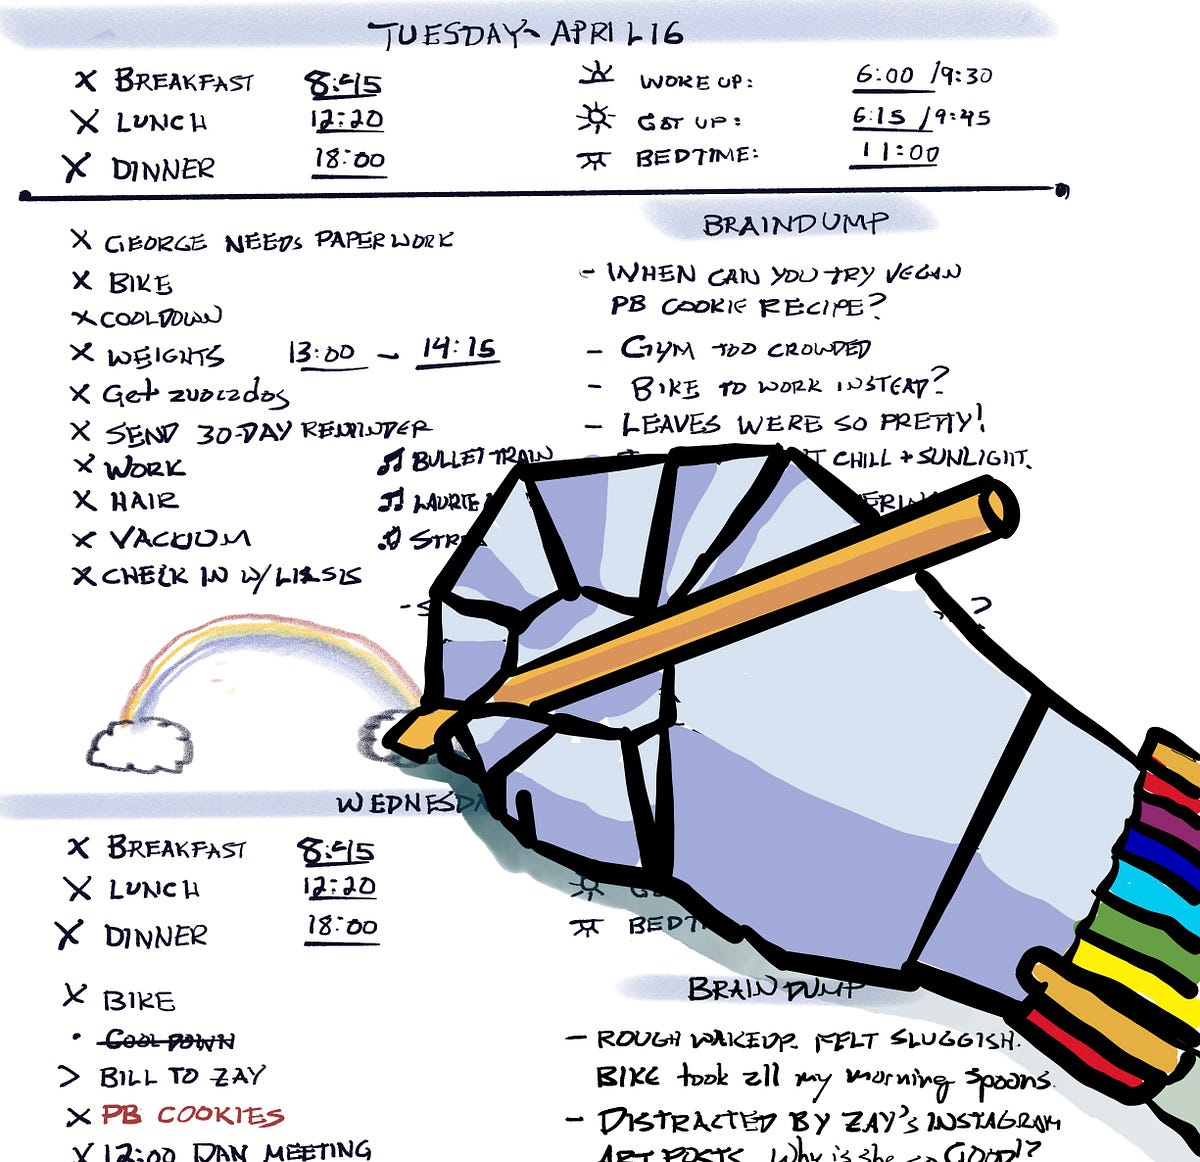 TUESDAY~ APRIL 16
X BREAKFAST 8:45
X LUNCH 12:20
X DINNER 18:00
WOKE UP: 6:00 / 9:30
GOT UP: 6:15 / 9:45
BEDTIME: 11:00
X GEORGE NEEDS PAPERWORK
X BIKE
X COOLDOWN
X WEIGHTS 13:00 - 14:15
X Get avocados
X SEND 30-DAY REMINDER
X WORK
X HAIR
X VACUUM
X CHECK IN W/
♫ BULLET TRAIN
♫ LAURIE
♫ STR
BRAINDUMP
- WHEN CAN YOU TRY VEGAN
PB COOKIE RECIPE?
- GYM TOO CROWDED
- BIKE TO WORK INSTEAD?
- LEAVES WERE SO PRETTY!
T CHILL + SUNLIGHT.
ERIN
- S
?
WEDNESDA
X BREAKFAST 8:45
X LUNCH 12:20
X DINNER 18:00
G
BEDT
X BIKE
• COOLDOWN
> BILL TO ZAY
X PB COOKIES
X 12:00 DAN MEETING
BRAINDUMP
- ROUGH WAKEUP. FELT SLUGGISH.
BIKE took all my morning spoons.
- DISTRACTED BY ZAY'S INSTAGRAM
ART POSTS. Why is she so GOOD!?